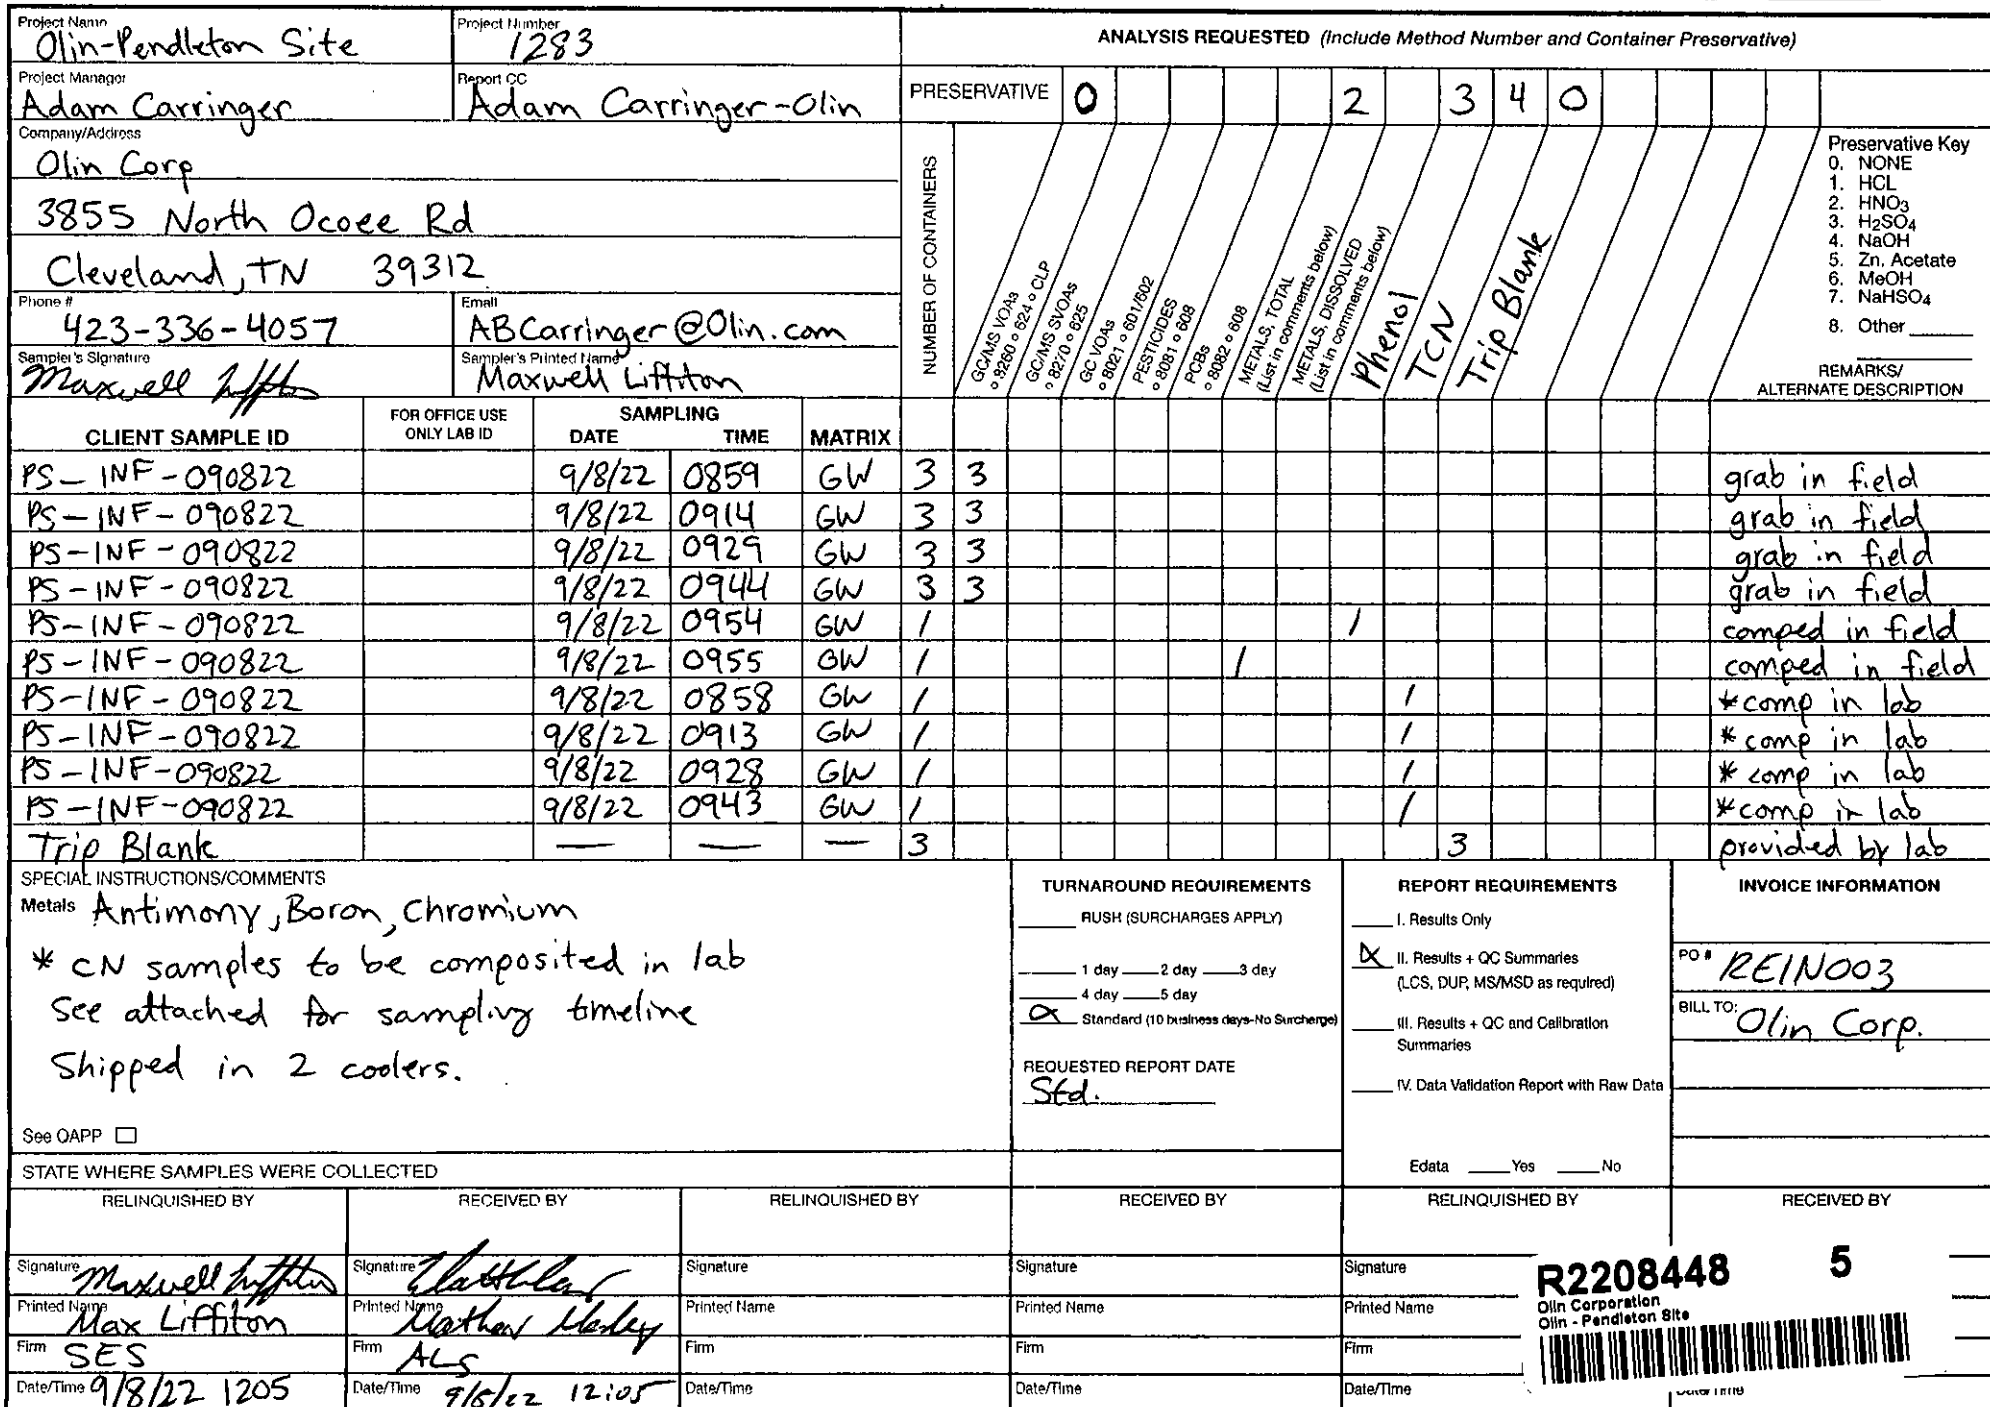 Project Name Project Number
Olin-Pendleton Site 1283
ANALYSIS REQUESTED (Include Method Number and Container Preservative)
Project Manager Report CC
Adam Carringer Adam Carringer-Olin
PRESERVATIVE 0 2 3 4 0
Company/Address
Olin Corp
3855 North Ocoee Rd
Cleveland, TN 39312
Phone # Email
423-336-4057 ABCarringer@Olin.com
Sampler's Signature Sampler's Printed Name
Maxwell Liffiton Maxwell Liffiton
NUMBER OF CONTAINERS
GC/MS VOAs
○ 8260 ○ 624 ○ CLP
GC/MS SVOAs
○ 8270 ○ 625
GC VOAs
○ 8021 ○ 601/602
PESTICIDES
○ 8081 ○ 608
PCBs
○ 8082 ○ 608
METALS, TOTAL
(List in comments below)
METALS, DISSOLVED
(List in comments below)
Phenol
TCN
Trip Blank
Preservative Key
0. NONE
1. HCL
2. HNO3
3. H2SO4
4. NaOH
5. Zn. Acetate
6. MeOH
7. NaHSO4
8. Other
REMARKS/
ALTERNATE DESCRIPTION
CLIENT SAMPLE ID FOR OFFICE USE ONLY LAB ID SAMPLING DATE TIME MATRIX
PS-INF-090822 9/8/22 0859 GW 3 3 grab in field
PS-INF-090822 9/8/22 0914 GW 3 3 grab in field
PS-INF-090822 9/8/22 0929 GW 3 3 grab in field
PS-INF-090822 9/8/22 0944 GW 3 3 grab in field
PS-INF-090822 9/8/22 0954 GW 1 1 comped in field
PS-INF-090822 9/8/22 0955 GW 1 1 comped in field
PS-INF-090822 9/8/22 0858 GW 1 1 *comp in lab
PS-INF-090822 9/8/22 0913 GW 1 1 *comp in lab
PS-INF-090822 9/8/22 0928 GW 1 1 *comp in lab
PS-INF-090822 9/8/22 0943 GW 1 1 *comp in lab
Trip Blank — — — 3 3 provided by lab
SPECIAL INSTRUCTIONS/COMMENTS
Metals Antimony, Boron, Chromium
* CN samples to be composited in lab
See attached for sampling timeline
Shipped in 2 coolers.
See QAPP
TURNAROUND REQUIREMENTS
RUSH (SURCHARGES APPLY)
1 day 2 day 3 day
4 day 5 day
X Standard (10 business days-No Surcharge)
REQUESTED REPORT DATE
Std.
REPORT REQUIREMENTS
I. Results Only
X II. Results + QC Summaries
(LCS, DUP, MS/MSD as required)
III. Results + QC and Calibration
Summaries
IV. Data Validation Report with Raw Data
Edata Yes No
INVOICE INFORMATION
PO # REIN003
BILL TO: Olin Corp.
STATE WHERE SAMPLES WERE COLLECTED
RELINQUISHED BY RECEIVED BY RELINQUISHED BY RECEIVED BY RELINQUISHED BY RECEIVED BY
Signature Maxwell Liffiton Signature Signature Signature Signature
Printed Name Max Liffiton Printed Name Printed Name Printed Name Printed Name
Firm SES Firm ALS Firm Firm Firm
Date/Time 9/8/22 1205 Date/Time 9/8/22 12:05 Date/Time Date/Time Date/Time Date/Time
R2208448 5
Olin Corporation
Olin - Pendleton Site